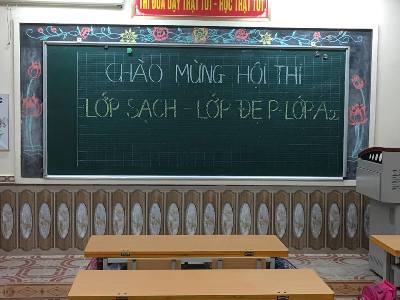 THI ĐUA DẠY THẬT TỐT - HỌC THẬT TỐT
CHÀO MỪNG HỘI THI
LỚP SẠCH - LỚP ĐẸP LỚPA2